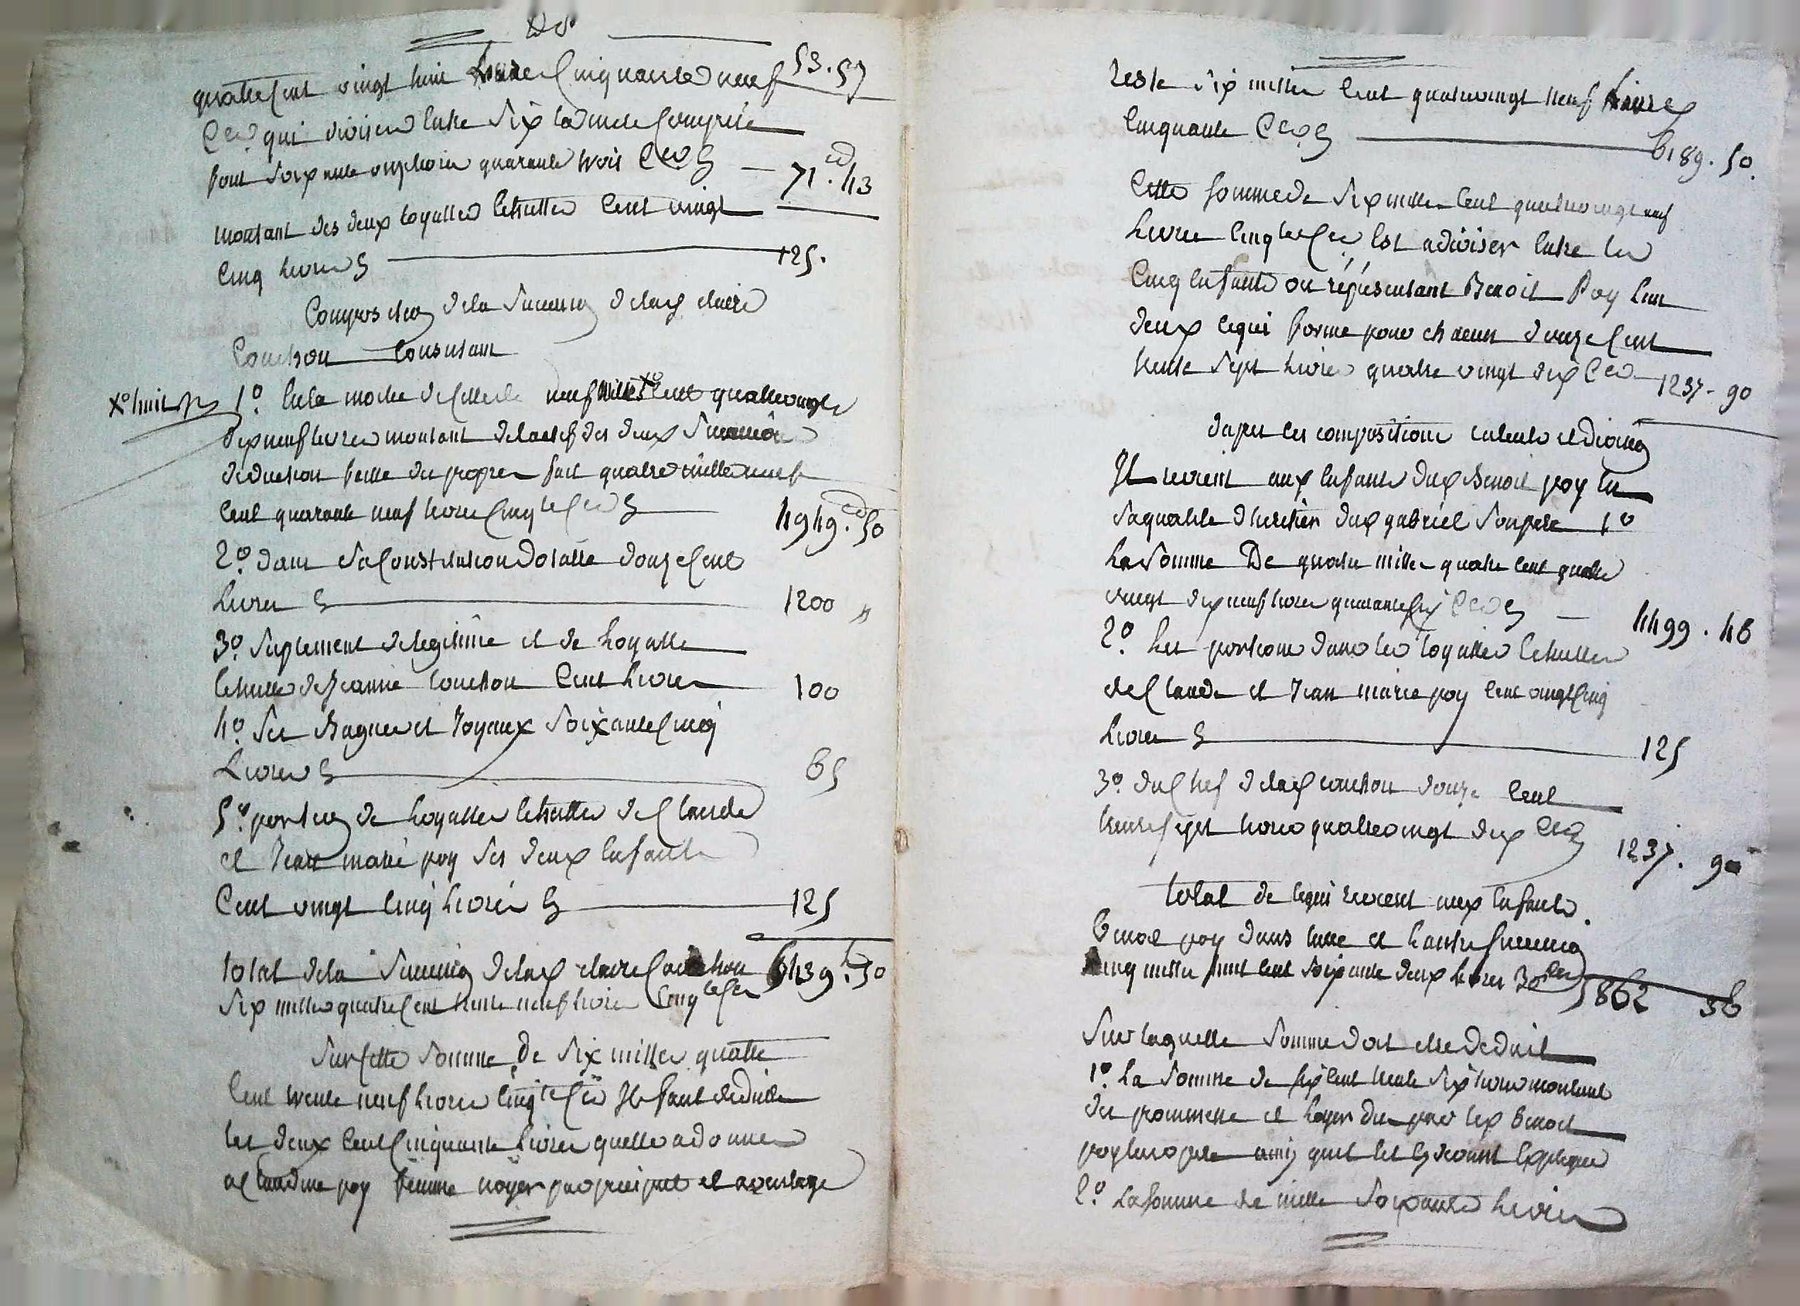 quatre Cent vingt huit livres Cinquante neuf 53.57
Ces qui diviser entre six la mere Comprise
font soixante onze livres quarante trois Ces 71.43
montant des deux loyalles echuttes Cent vingt
Cinq livres 125.
Composition de la succession de la ditte claire
Couchou Consistant
Xo huit 1º. En la moitie de celle de neuf mille Xo Cent quatre vingt
dix neuf livres montant de la des deux succession
deduction faitte du propre fait quatre mille neuf
Cent quarante neuf livres Cinqte Ces 4949.50
2º. dans sa Constitution dotalle douze Cent
livres 1200 "
3º. suplement de legitime et de loyalle
echutte de Jeanne Couchou Cent livres 100
4º. ses Bagues et Joyaux soixante Cinq
Livres 65
5º. portion de loyalles echuttes de Claude
et Jean marie poy ses deux Enfants
Cent vingt Cinq livres 125
total de la succession de la claire Couchou 6439.50
six mille quatre Cent trente neuf livres Cinqte Ces
sur cette somme de six mille quatre
Cent trente neuf livres Cinqte Ces Il faut deduire
les deux Cent Cinquante livres quelle a donnée
a Claudine poy femme noyer par preciput et avantage
reste six mille Cent quatre vingt neuf livres
Cinquante Ces 6189.50.
Cette somme de six mille Cent quatre vingt neuf
livres Cinqte Ces Est a diviser Entre les
Cinq Enfants ou représentant Benoit Poy l'un
deux Ce qui forme pour chacun douze Cent
trente sept livres quatre vingt dix Ces 1237.90
dapres les compositions calculs et division
Il revient aux Enfants du Benoit poy En
sa qualité d'heritier du gabriel son pere 1º
La somme De quatre mille quatre Cent quatre
vingt dix neuf livres quarante six Ces 4499.46
2º. Les portions dans les loyalles Echuttes
de Claude et Jean marie poy Cent vingt Cinq
livres 125
3º. du Chef de la Couchou douze Cent
trente sept livres quatre vingt dix Ces 1237.90
total de Ce qui revient aux Enfants
Benoit poy dans l'une et l'autre succession
Cinq mille huit Cent soixante deux livres 5862 36
sur laquelle somme doit etre deduit
1º. La somme de Cent trente six livres montant
des promesse et loyer du par le Benoit
poy a son pere ainsi quil Est Cy devant Expliqué
2º. La somme de mille soixante livres